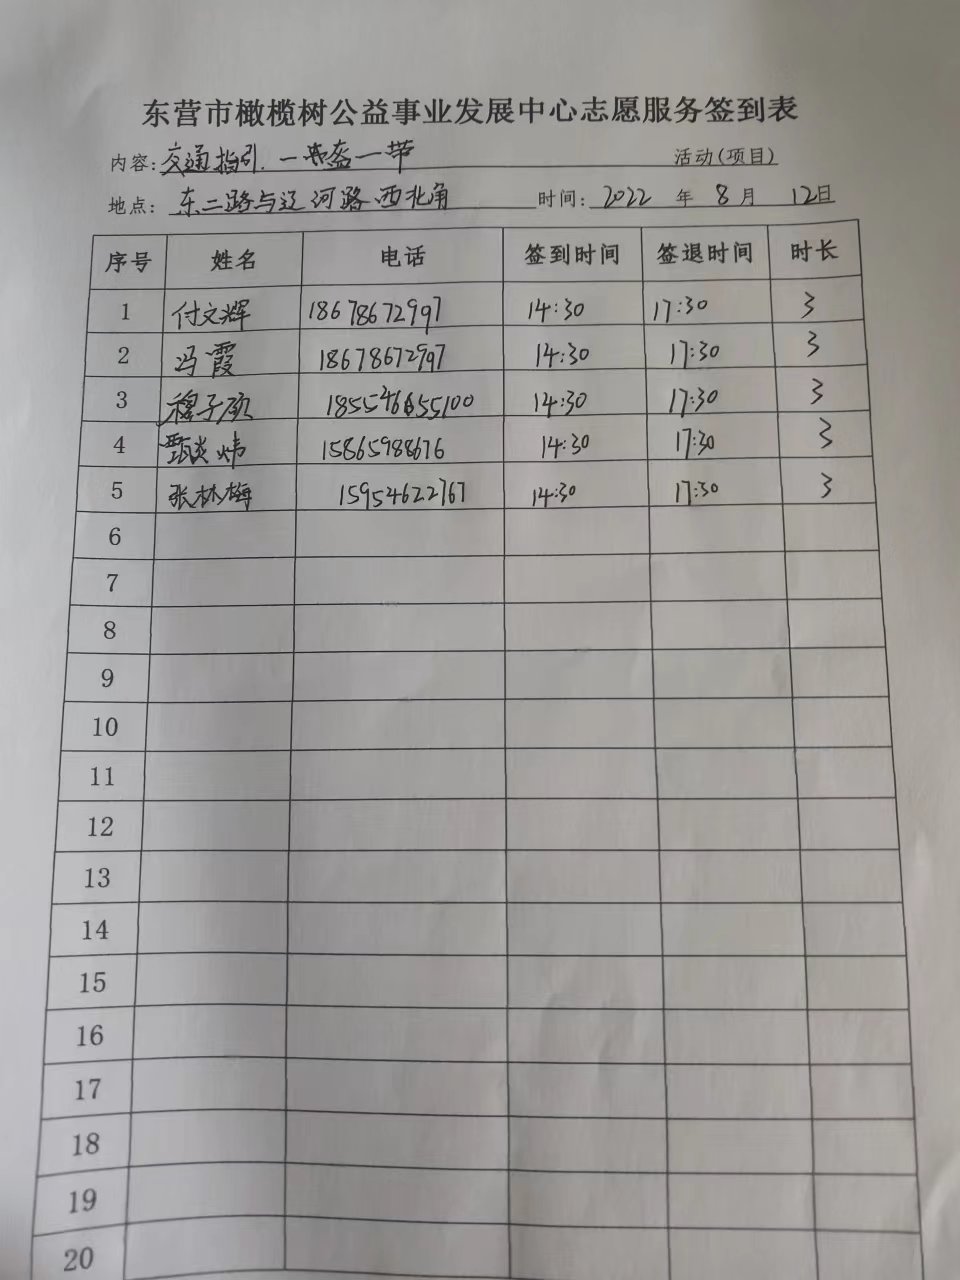 东营市橄榄树公益事业发展中心志愿服务签到表
内容: 交通指引. 一盔一带 活动(项目)
地点: 东二路与辽河路西北角 时间: 2022 年 8 月 12日
序号 姓名 电话 签到时间 签退时间 时长
1 付文辉 18678672997 14:30 17:30 3
2 冯霞 18678672997 14:30 17:30 3
3 穆子硕 18554665100 14:30 17:30 3
4 甄炎炜 15865988676 14:30 17:30 3
5 张林梅 15954622767 14:30 17:30 3
6
7
8
9
10
11
12
13
14
15
16
17
18
19
20